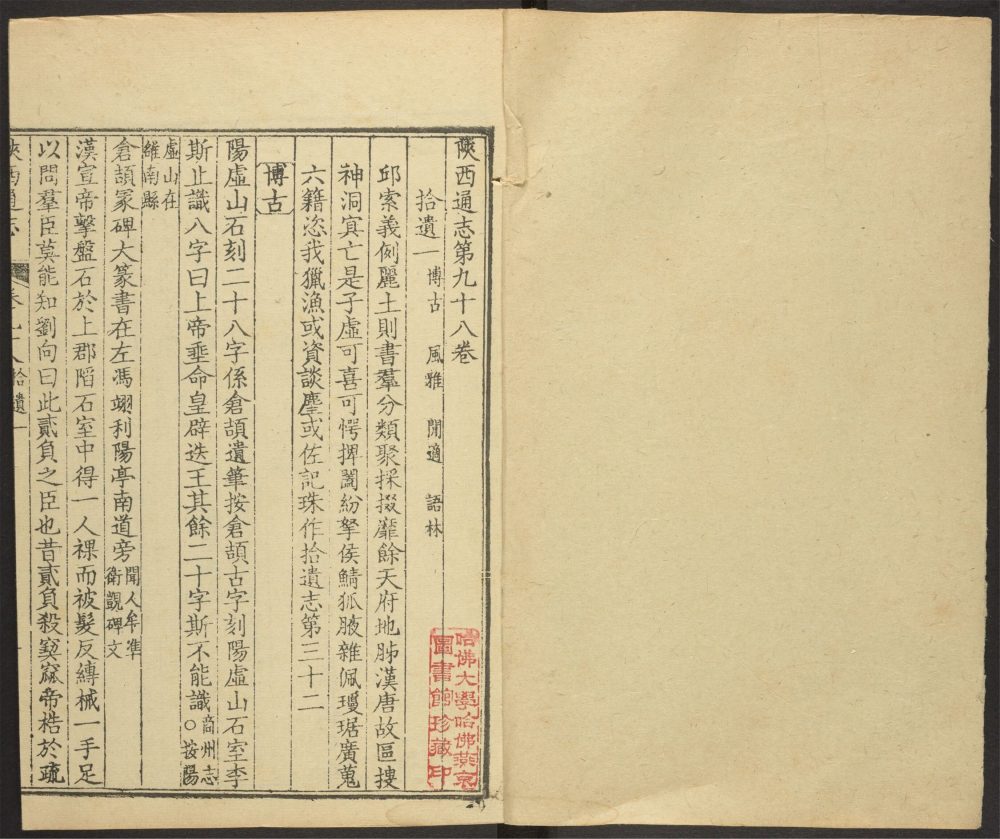 陝西通志第九十八卷
拾遺一 博古 風雅 閒適 語林
邱索義例麗土則書羣分類聚採掇靡餘天府地肺漢唐故區摟
神洞寘亡是子虛可喜可愕捭闔紛拏侯鯖狐腋雜佩瓊琚廣蒐
六籍恣我獵漁或資談麈或佐記珠作拾遺志第三十二
博古
陽虛山石刻二十八字係倉頡遺筆按倉頡古字刻陽虛山石室李
斯止識八字曰上帝垂命皇辟迭王其餘二十字斯不能識 商州志 ○按陽
虛山在
雒南縣
倉頡冢碑大篆書在左馮翊利陽亭南道旁 聞人牟準
衛覬碑文
漢宣帝擊盤石於上郡陷石室中得一人裸而被髮反縛械一手足
以問羣臣莫能知劉向曰此貳負之臣也昔貳負殺窫窳帝梏於疏
陝西通志 卷九十八 拾遺一
哈佛大學哈佛燕京
圖書館珍藏印